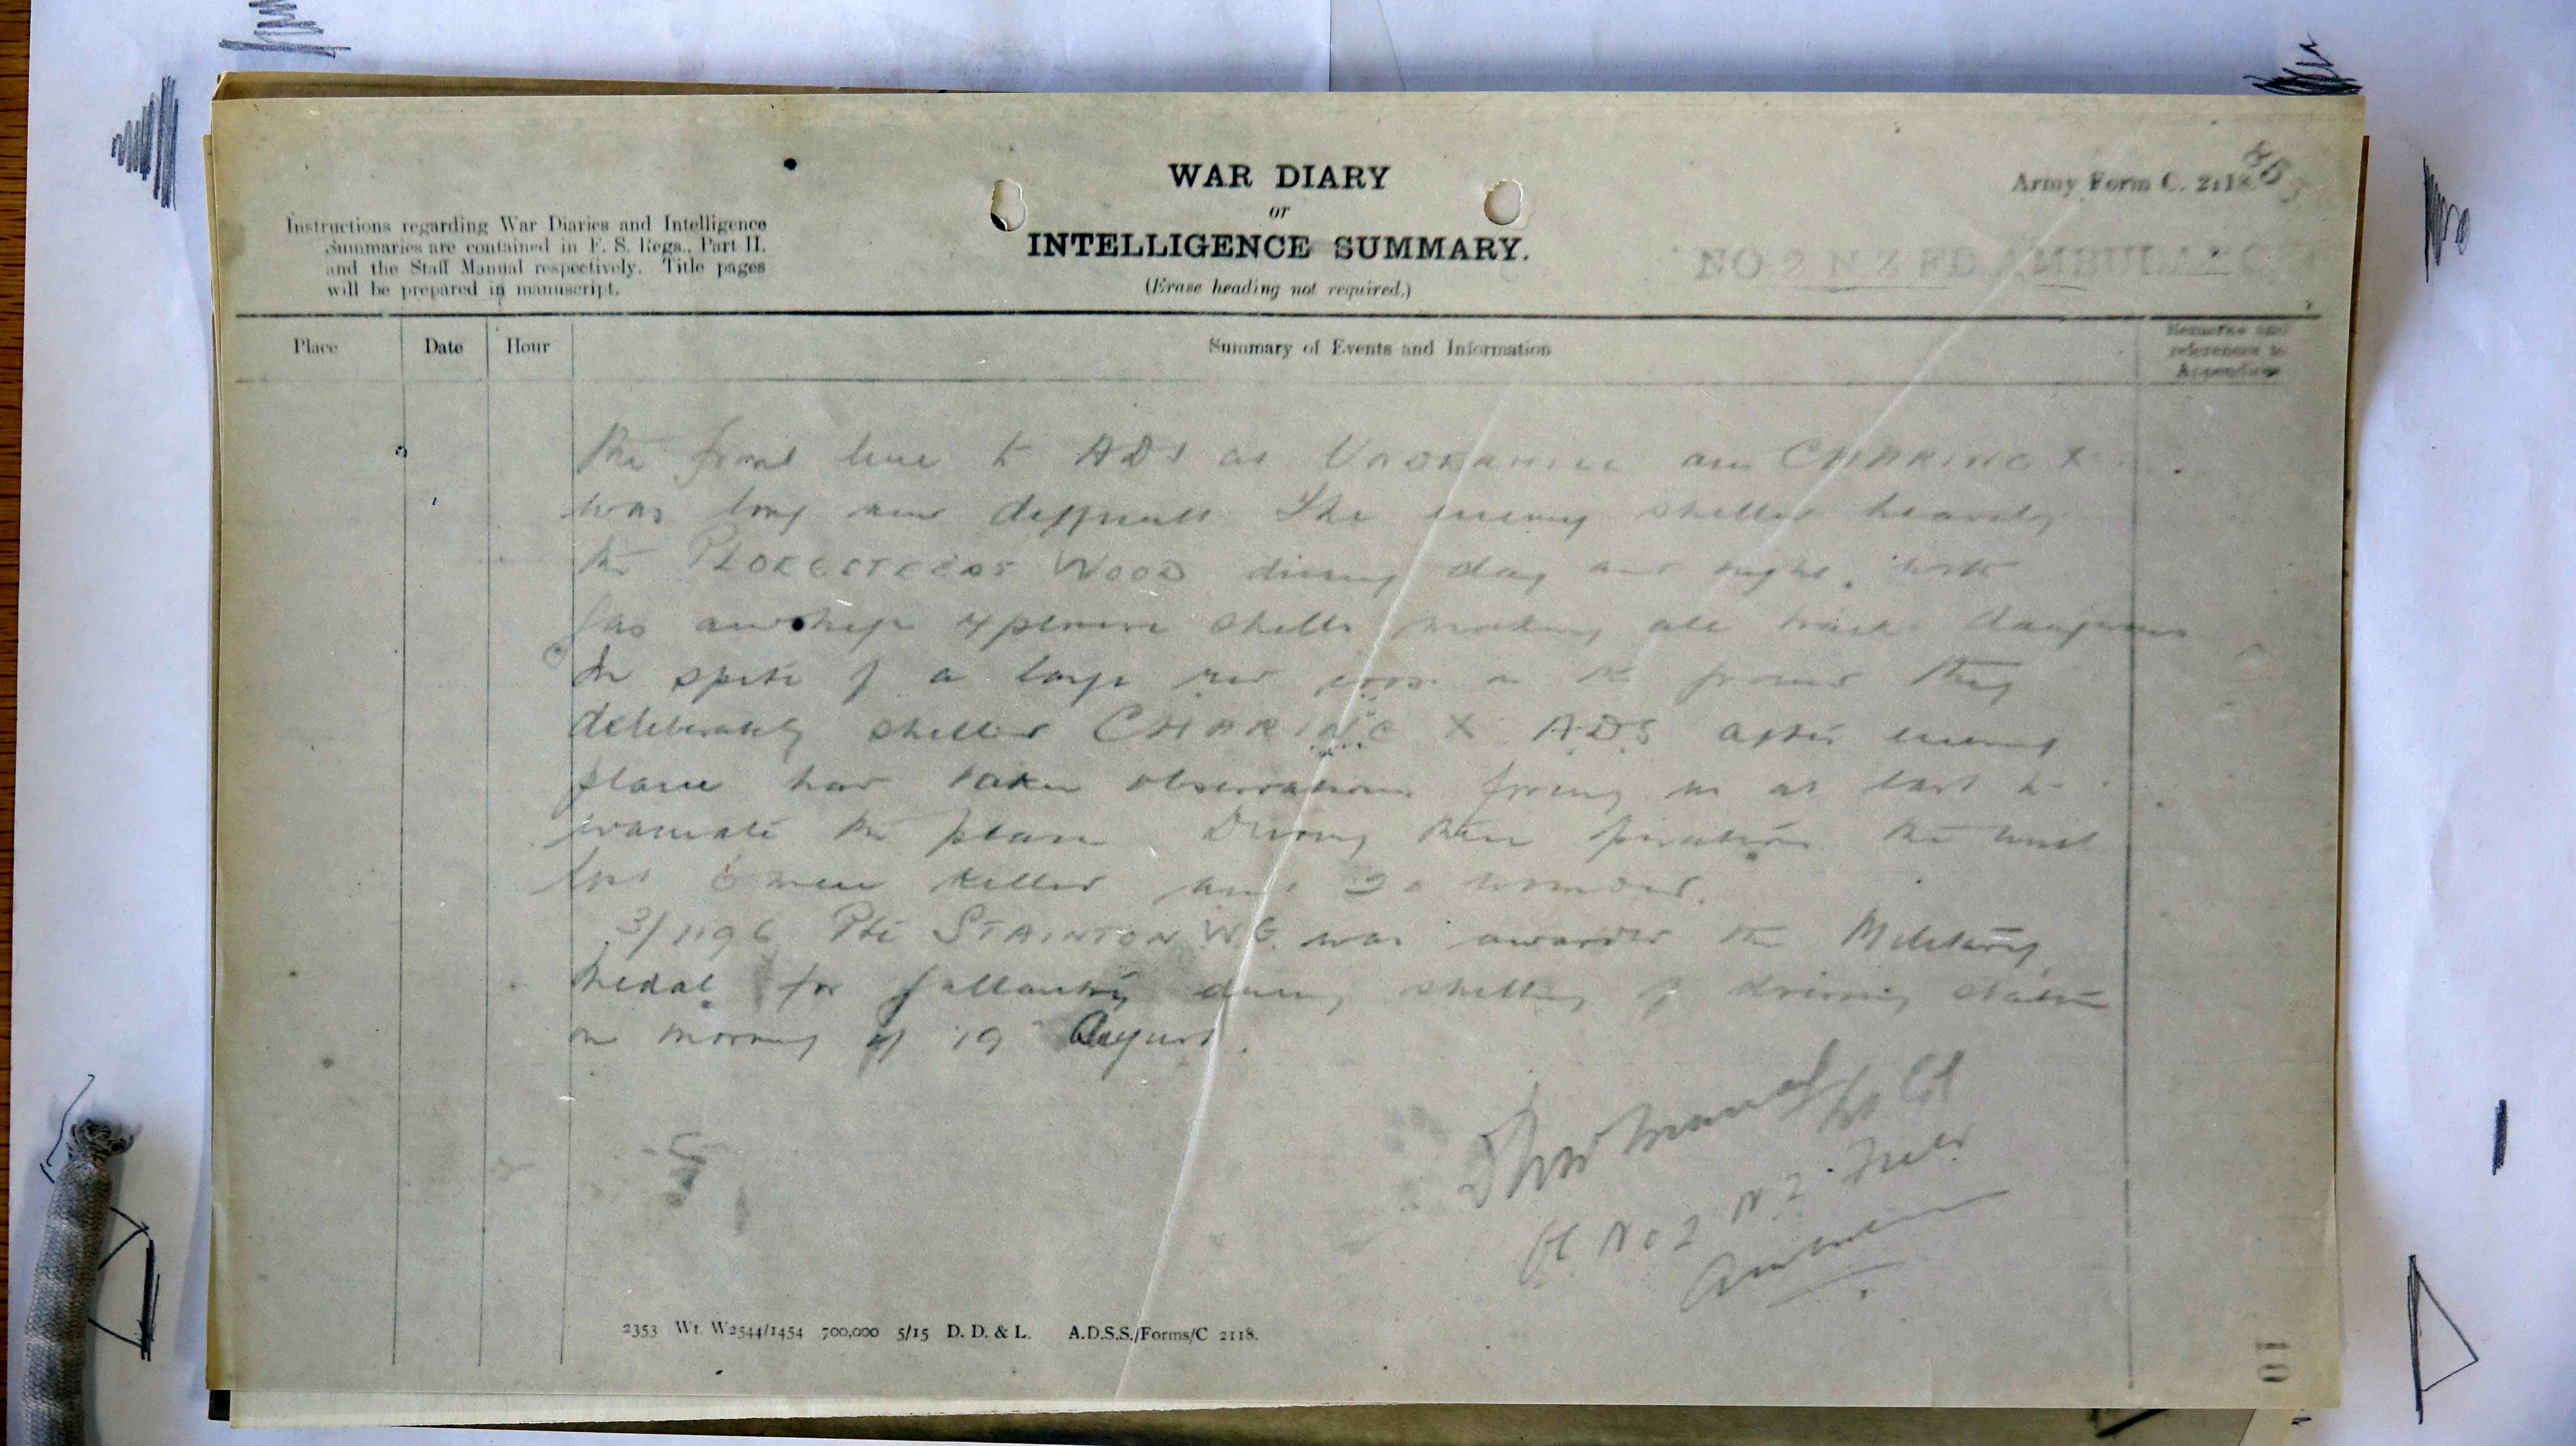 WAR DIARY
or
INTELLIGENCE SUMMARY.
(Erase heading not required.)
Army Form C. 2118.
Instructions regarding War Diaries and Intelligence
Summaries are contained in F. S. Regs., Part II.
and the Staff Manual respectively. Title pages
will be prepared in manuscript.
Place
Date
Hour
Summary of Events and Information
Remarks and
references to
Appendices
the front line to ADS at and CHARING X
was long and difficult The enemy shelled heavily
the WOOD during day and night. with
Gas and high explosive shells making all tracks dangerous
In spite of a large red cross on the ground they
deliberately shelled CHARING X ADS after enemy
plane had taken observations forcing us at last to
evacuate the place During these operations the unit
lost 6 men killed and 20 wounded.
3/1196 Pte STAINTON W.G. was awarded the Military
Medal for gallantry during shelling of dressing station
on morning of 19 August.
Lt Col
OC No 2 N.Z. Field
Ambulance
2353 Wt. W2544/1454 700,000 5/15 D. D. & L. A.D.S.S./Forms/C 2118.
10